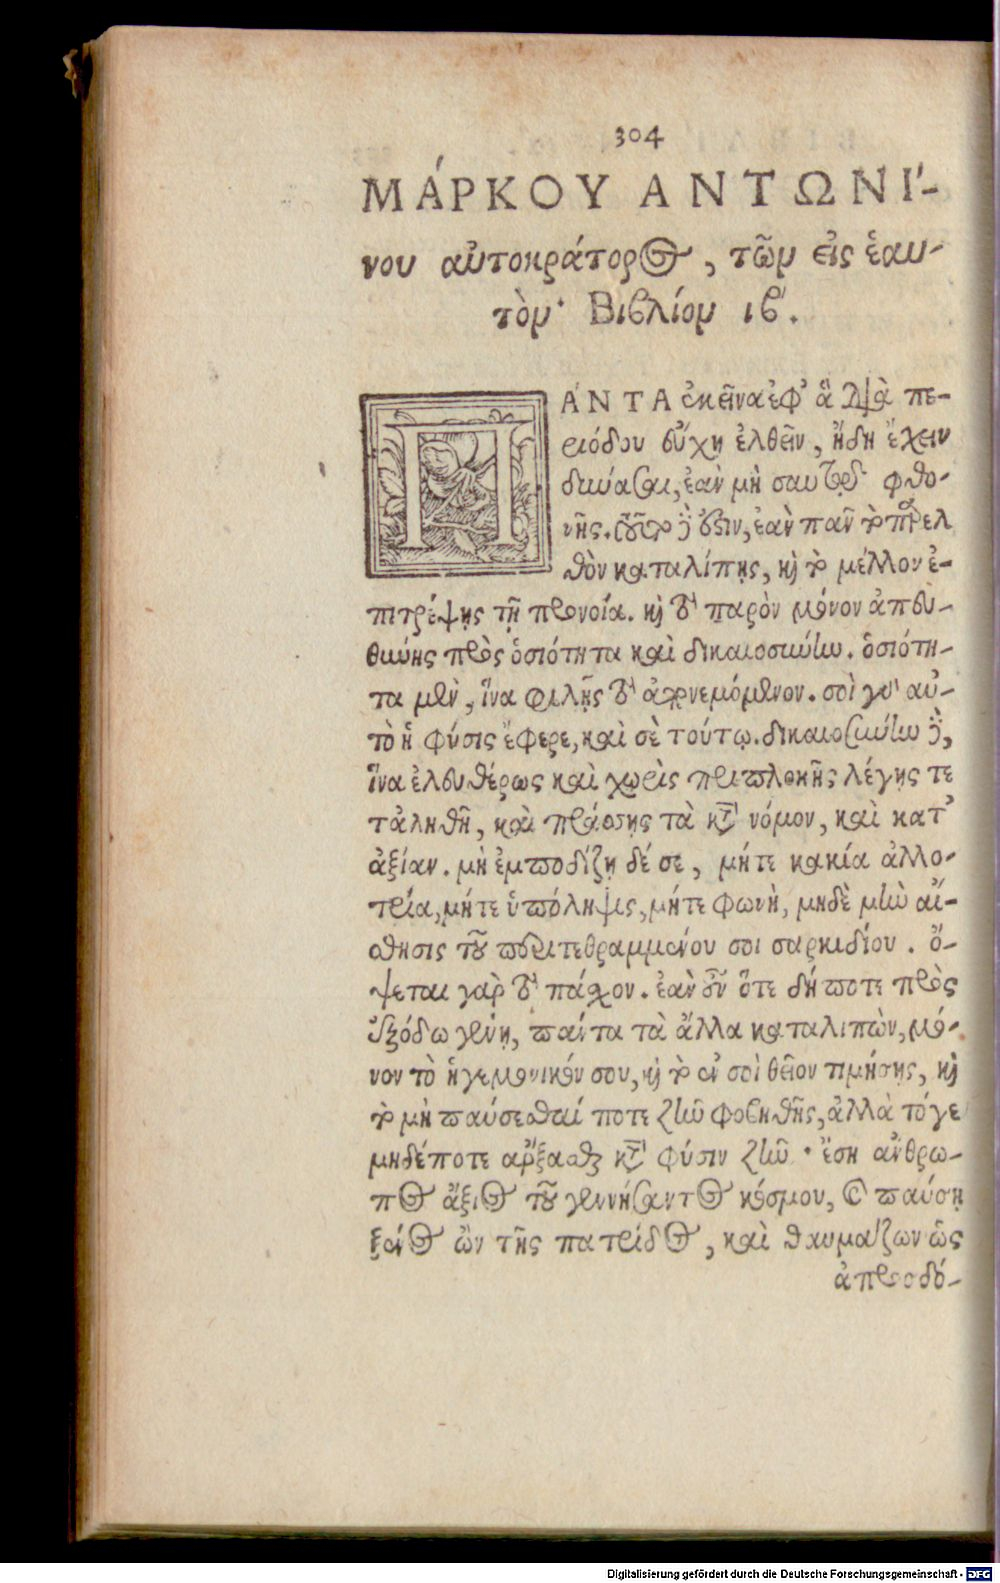 304
ΜΆΡΚΟΥ ΑΝΤΩΝΊ-
νου αὐτοκράτορος, τῶν εἰς ἑαυ-
τὸν· Βιβλίον ιβ'.
ΠΆΝΤΑ ἐκεῖνα ἐφ' ἃ διὰ πε-
ριόδου εὔχῃ ἐλθεῖν, ἤδη ἔχειν
δύνασαι, ἐὰν μὴ σαυτῷ φθο-
νῇς. τοῦτο δέ ἐστιν, ἐὰν πᾶν τὸ παρελ
θὸν καταλίπῃς, καὶ τὸ μέλλον ἐ-
πιτρέψῃς τῇ προνοίᾳ. καὶ τὸ παρὸν μόνον ἀπευ-
θύνῃς πρὸς ὁσιότητα καὶ δικαιοσύνην. ὁσιότη-
τα μὲν, ἵνα φιλῇς τὸ ἀπονεμόμενον. σοὶ γὰρ αὐ-
τὸ ἡ φύσις ἔφερε, καὶ σὲ τούτῳ. δικαιοσύνην δὲ,
ἵνα ἐλευθέρως καὶ χωρὶς περιπλοκῆς λέγῃς τε
τἀληθῆ, καὶ πράσσῃς τὰ κατὰ νόμον, καὶ κατ'
ἀξίαν. μὴ ἐμποδίζῃ δέ σε, μήτε κακία ἀλλο-
τρία, μήτε ὑπόληψις, μήτε φωνὴ, μηδὲ μὴν αἴ-
σθησις τοῦ περιτεθραμμένου σοι σαρκιδίου. ὄ-
ψεται γὰρ τὸ πάσχον. ἐὰν οὖν ὅτε δήποτε πρὸς
ἐξόδῳ γένῃ, πάντα τὰ ἄλλα καταλιπὼν, μό-
νον τὸ ἡγεμονικόν σου, καὶ τὸ ἐν σοὶ θεῖον τιμήσῃς, καὶ
τὸ μὴ παύσεσθαί ποτε ζῆν φοβηθῇς, ἀλλὰ τό γε
μηδέποτε ἄρξασθαι κατὰ φύσιν ζῆν· ἔσῃ ἄνθρω-
πος ἄξιος τοῦ γεννήσαντος κόσμου, καὶ παύσῃ
ξένος ὢν τῆς πατρίδος, καὶ θαυμάζων ὡς
ἀπροσδό-
Digitalisierung gefördert durch die Deutsche Forschungsgemeinschaft - DFG